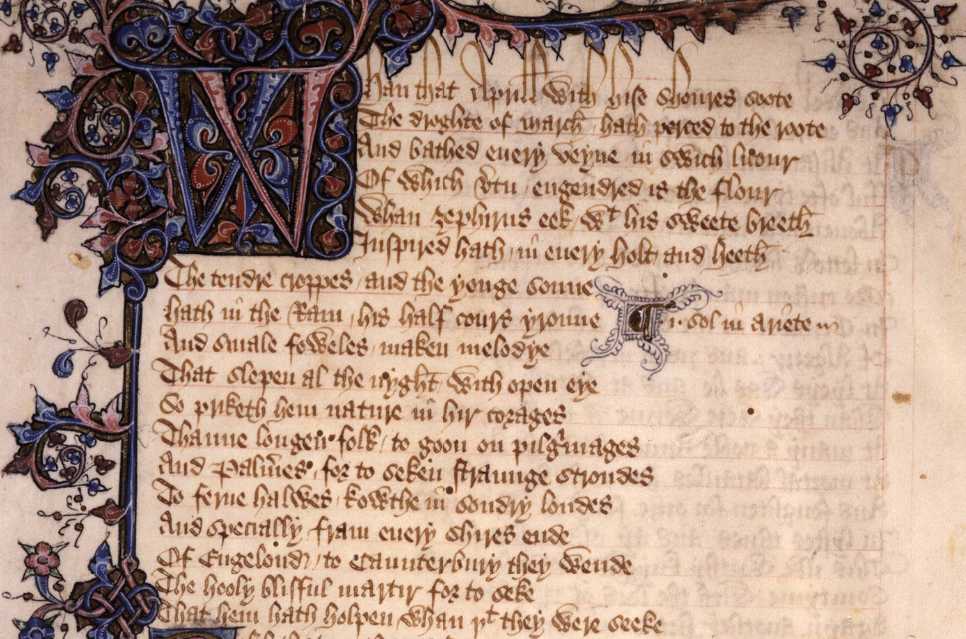 Whan that Aprill with hise shoures soote
The droghte of march / hath perced to the roote
And bathed euery veyne in swich licour
Of which vtu / engendred is the flour
Whan zephirus eek / wt his sweete breeth
Inspired hath / in euery holt and heeth
The tendre croppes / and the yonge sonne
hath in the Ram / his half cours yronne ¶ .i. sol in ariete
And smale foweles / maken melodye
That slepen al the nyght / with open eye
So priketh hem nature / in hir corages
Thanne longen folk / to goon on pilgrimages
And Palmeres / for to seken straunge strondes
To ferne halwes / kowthe in sondry londes
And specially / fram euery shires ende
Of Engelond / to Caunterbury they wende
The hooly blisful martir / for to seke
That hem hath holpen whan þt they were seeke